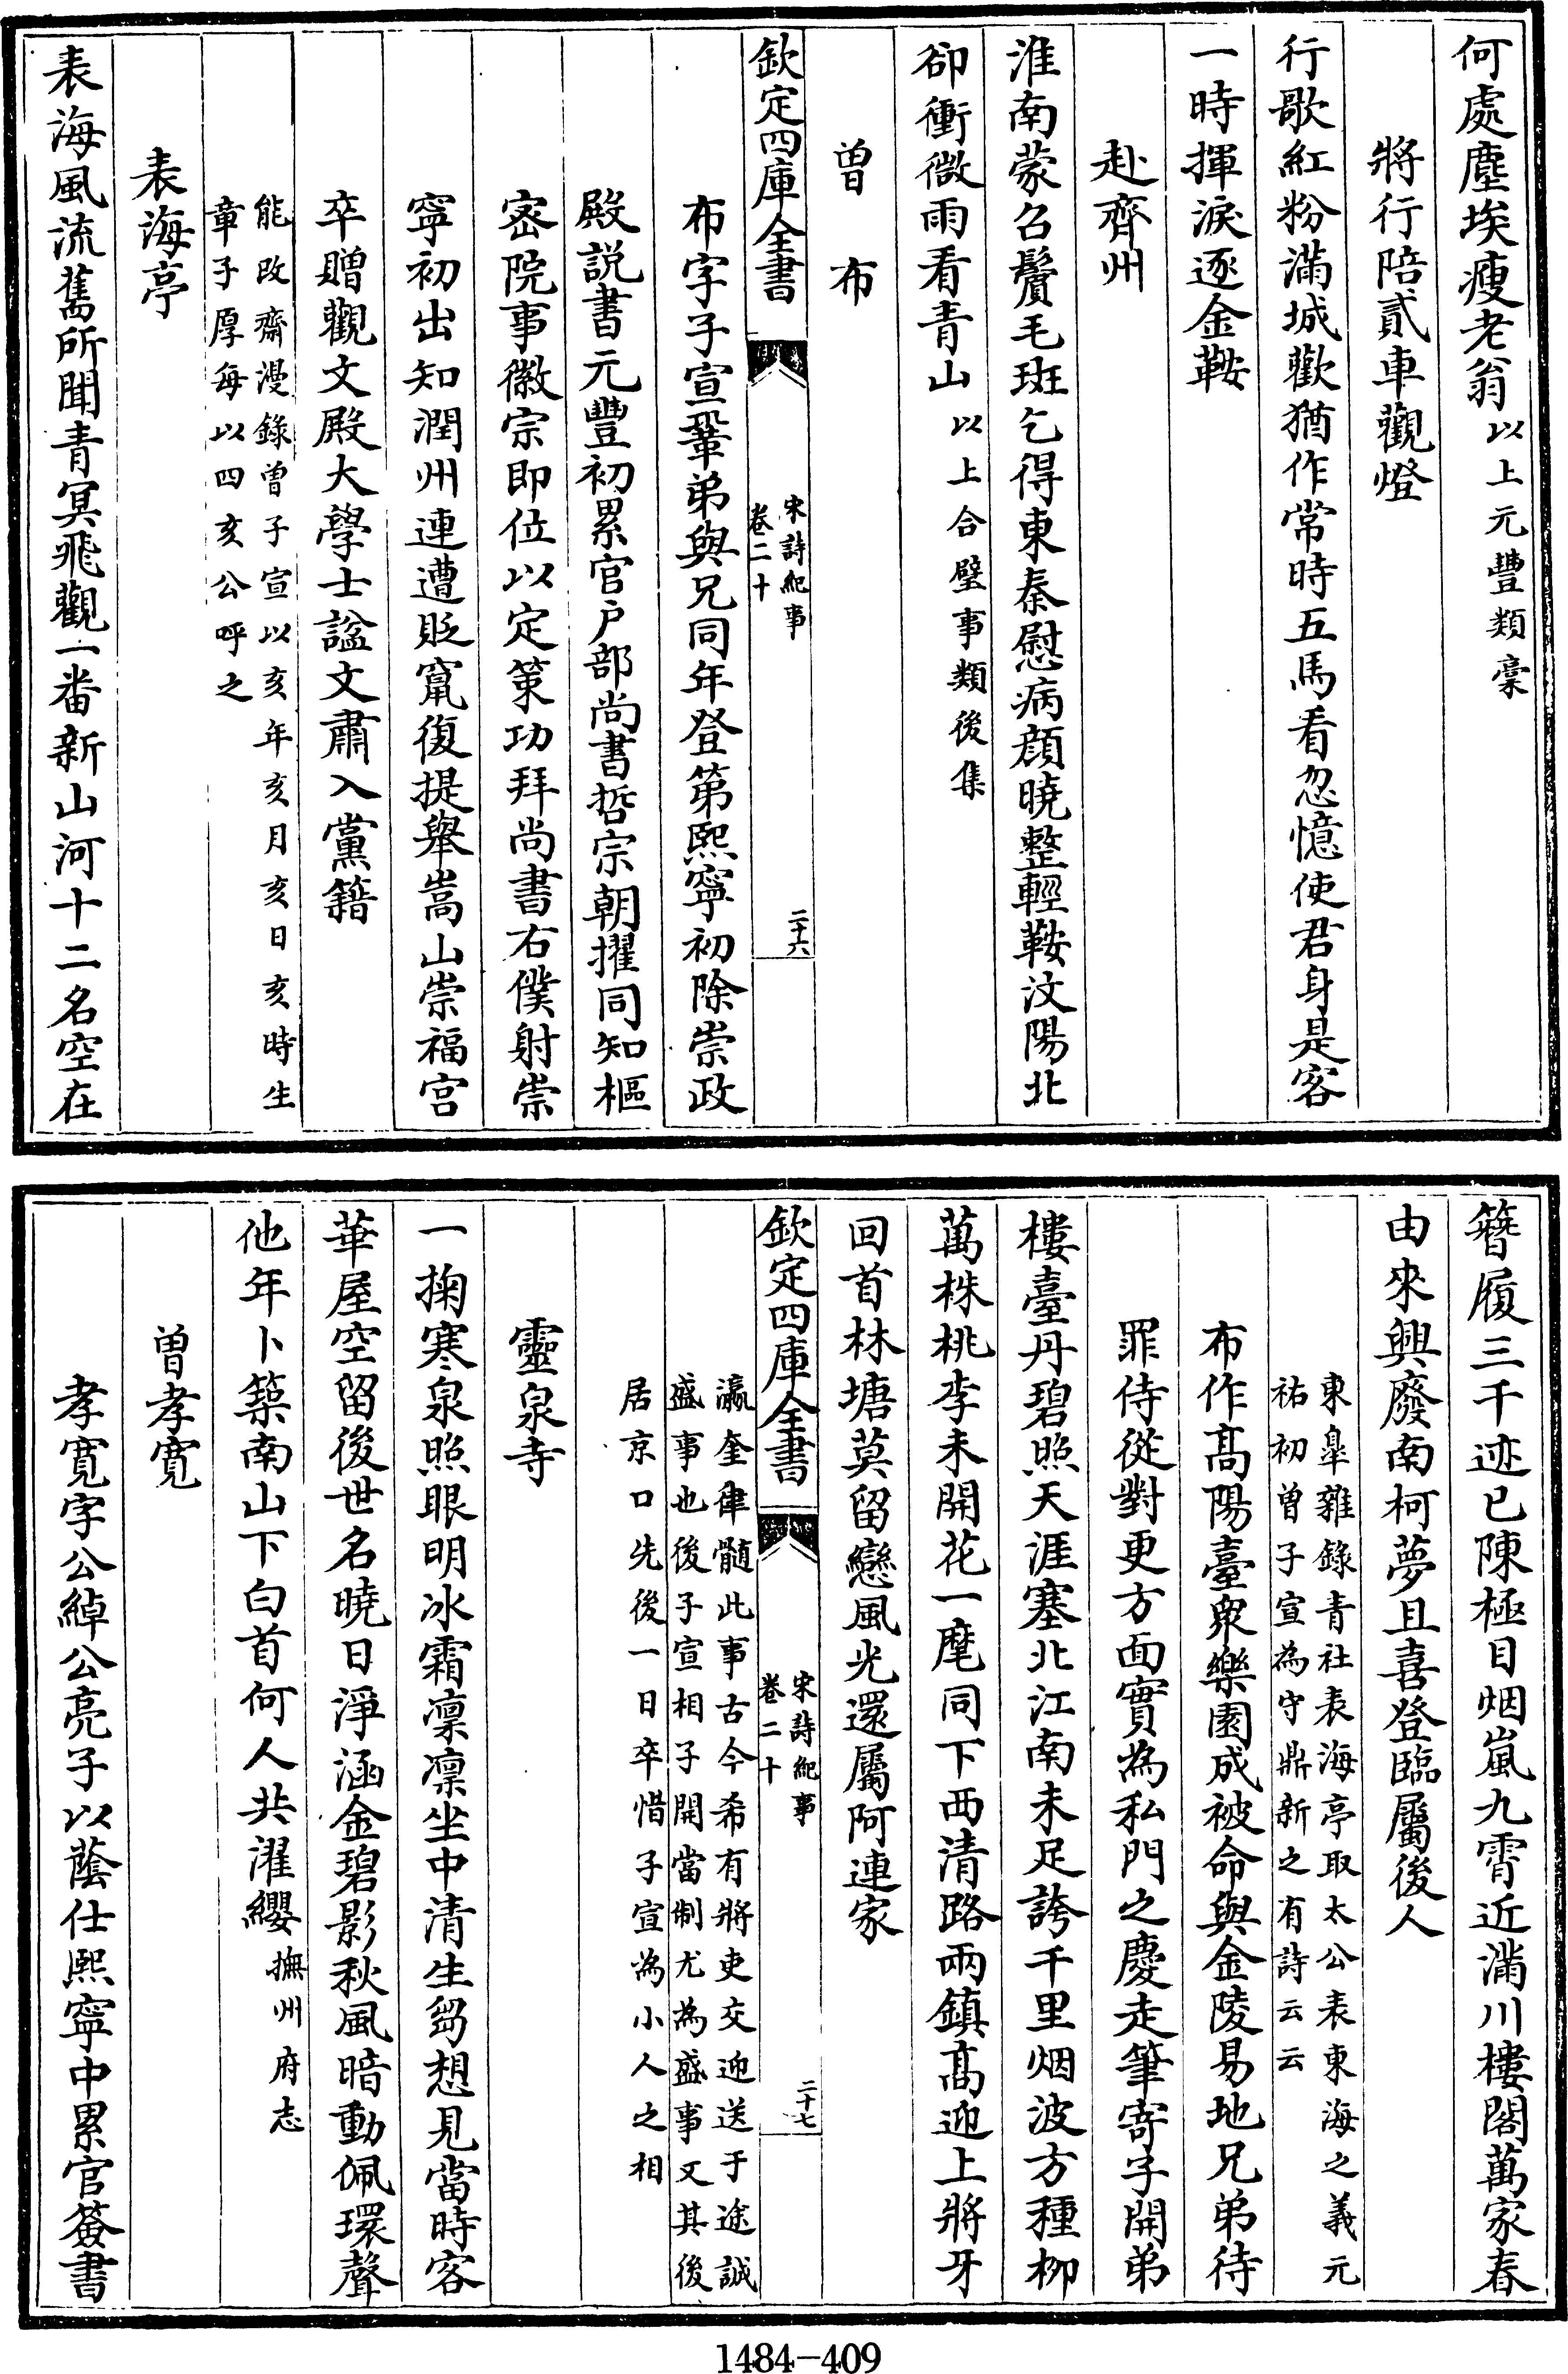 何處塵埃瘦老翁以上元豐類稾
將行陪貳車觀燈
行歌紅粉滿城歡猶作常時五馬看忽憶使君身是客
一時揮淚逐金鞍
赴齊州
淮南蒙召鬢毛班乞得東秦慰病顏曉整輕鞍汶陽北
卻衝微雨看青山以上合璧事類後集
曾布
欽定四庫全書
宋詩紀事
卷二十
二十六
布字子宣鞏弟與兄同年登第熙寧初除崇政
殿説書元豐初累官戶部尚書哲宗朝擢同知樞
密院事徽宗即位以定策功拜尚書右僕射崇
寧初出知潤州連遭貶竄復提舉嵩山崇福宮
卒贈觀文殿大學士諡文肅入黨籍
能改齋漫錄曾子宣以亥年亥月亥日亥時生
章子厚每以四亥公呼之
表海亭
表海風流舊所聞青冥飛觀一番新山河十二名空在
簪履三千迹已陳極目烟嵐九霄近滿川樓閣萬家春
由來興廢南柯夢且喜登臨屬後人
東皋雜錄青社表海亭取太公表東海之義元
祐初曾子宣為守鼎新之有詩云云
布作髙陽臺衆樂園成被命與金陵易地兄弟待
罪侍從對更方面實為私門之慶走筆寄子開弟
樓臺丹碧照天涯塞北江南未足誇千里烟波方種柳
萬株桃李未開花一麾同下西清路兩鎮髙迎上將牙
回首林塘莫留戀風光還屬阿連家
欽定四庫全書
宋詩紀事
卷二十
二十七
瀛奎律髓此事古今希有將吏交迎送于途誠
盛事也後子宣相子開當制尤為盛事又其後
居京口先後一日卒惜子宣為小人之相
靈泉寺
一掬寒泉照眼明冰霜凛凛坐中清生芻想見當時客
華屋空留後世名曉日淨涵金碧影秋風暗動佩環聲
他年卜築南山下白首何人共濯纓撫州府志
曾孝寛
孝寛字公綽公亮子以蔭仕熙寧中累官簽書
1484-409